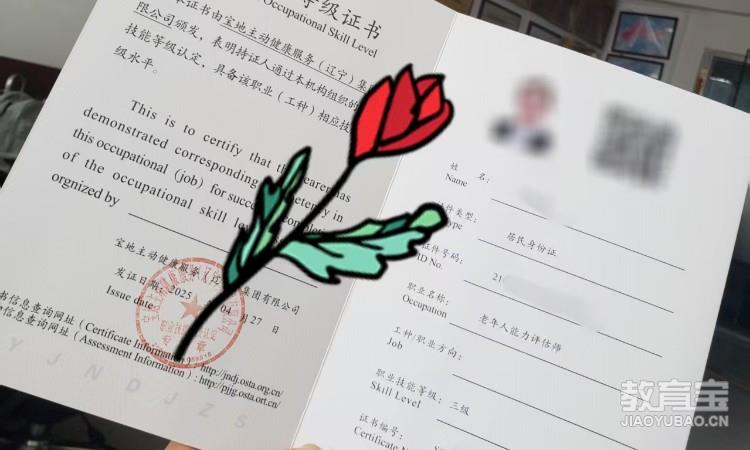 等级证书
Occupational Skill Level
本证书由宝地主动健康服务(辽宁)集
限公司颁发,表明持证人通过本机构组织的
技能等级认定,具备该职业(工种)相应技
级水平。
This is to certify that the bearer has
demonstrated corresponding
this occupational (job) for
of the occupational skill
orgnized by
宝地主动健康服务(辽宁)集团有限公司
发证日期:2025 04 月 27 日
Issue date
书信息查询网址 (Certificate Information): http://jndj.osta.org.cn/
信息查询网址 (Assessment Information): http://pjjg.osta.ort.cn/
Y J N D J Z S
姓 名:
Name
证件类型:
居民身份证
证件号码:
ID No.
21
职业名称:
Occupation
老年人能力评估师
工种/职业方向:
Job
职业技能等级:三级
Skill Level
证书编号:
Certificate N
教育宝
JIAOYUBAO.CN